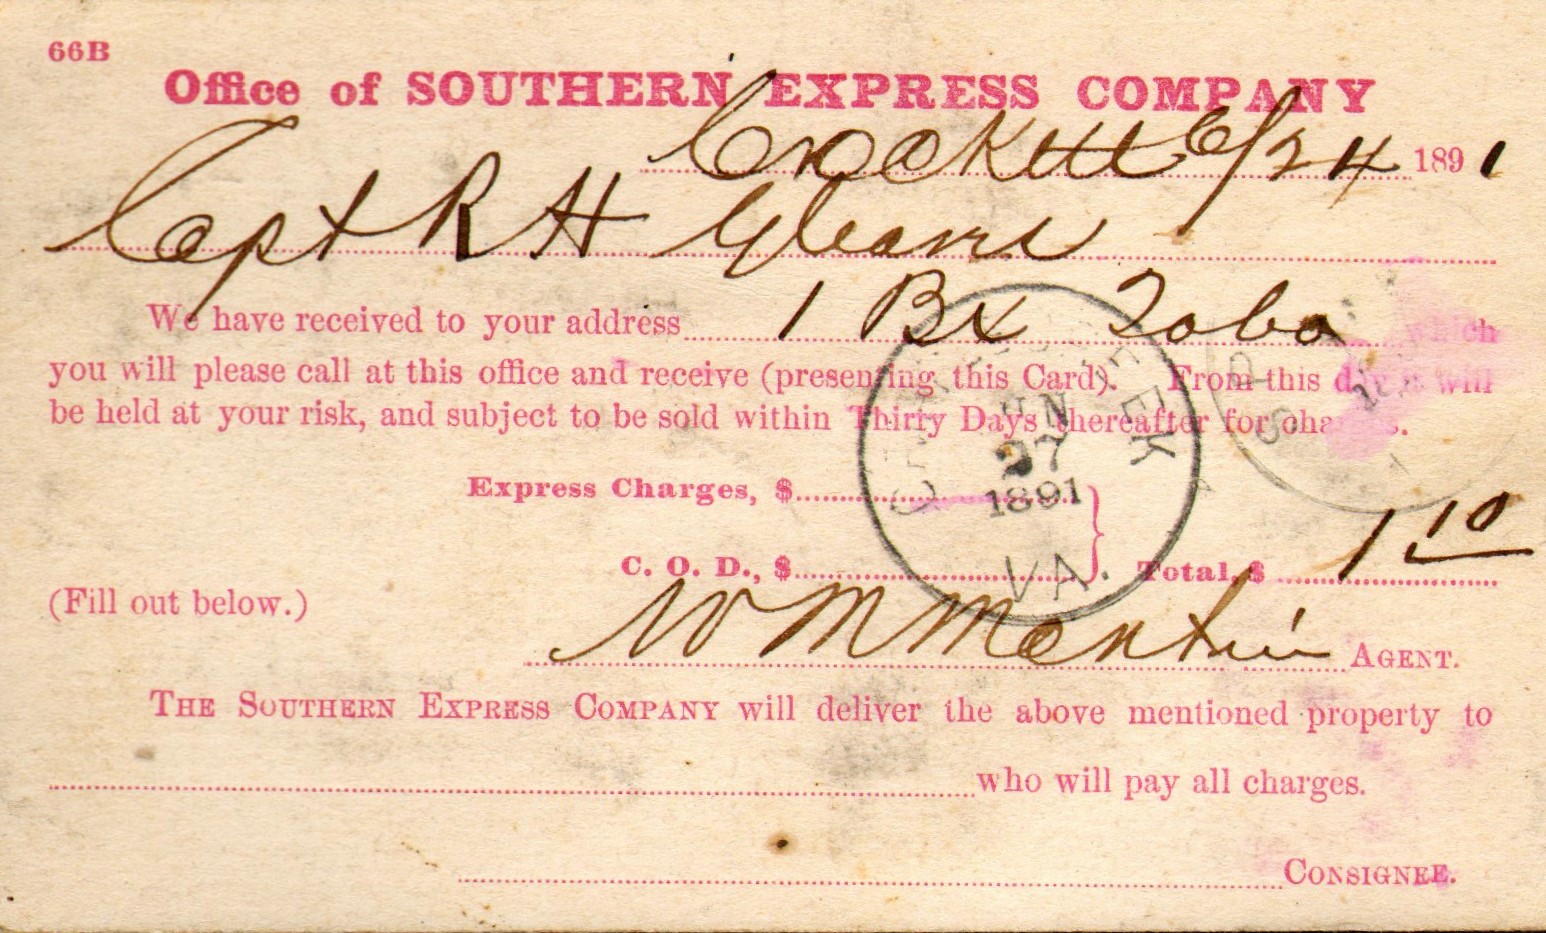 66B
Office of SOUTHERN EXPRESS COMPANY
Crockett 6/24 1891
Capt R H Gleaves
We have received to your address 1 Bx Tobo which
you will please call at this office and receive (presenting this Card). From this day it will
be held at your risk, and subject to be sold within Thirty Days thereafter for charges.
Express Charges, $
C. O. D., $ Total, $ 1 10
(Fill out below.)
W M Martin AGENT.
THE SOUTHERN EXPRESS COMPANY will deliver the above mentioned property to
who will pay all charges.
CONSIGNEE.
CREEK
JUN
27
1891
VA.